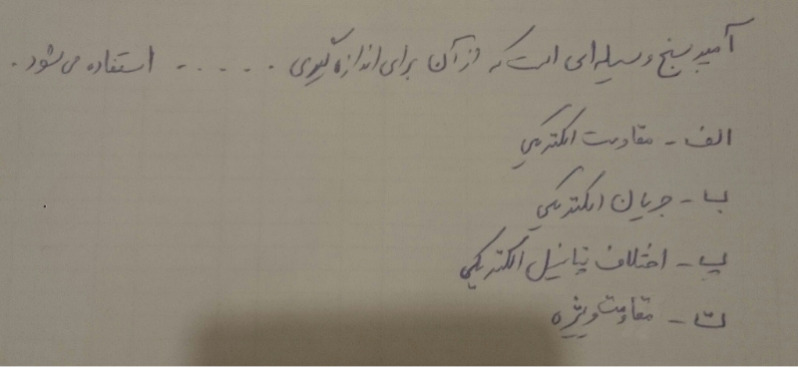 آمپرسنج وسیله‌ای است که از آن برای اندازه‌گیری ..... استفاده می‌شود.
الف - مقاومت الکتریکی
ب - جریان الکتریکی
پ - اختلاف پتانسیل الکتریکی
ت - مقاومت ویژه